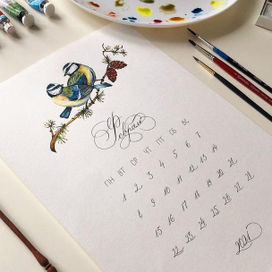 Февраль
ПН ВТ СР ЧТ ПТ СБ ВС
1 2 3 4 5 6 7
8 9 10 11 12 13 14
15 16 17 18 19 20 21
22 23 24 25 26 27 28
2021